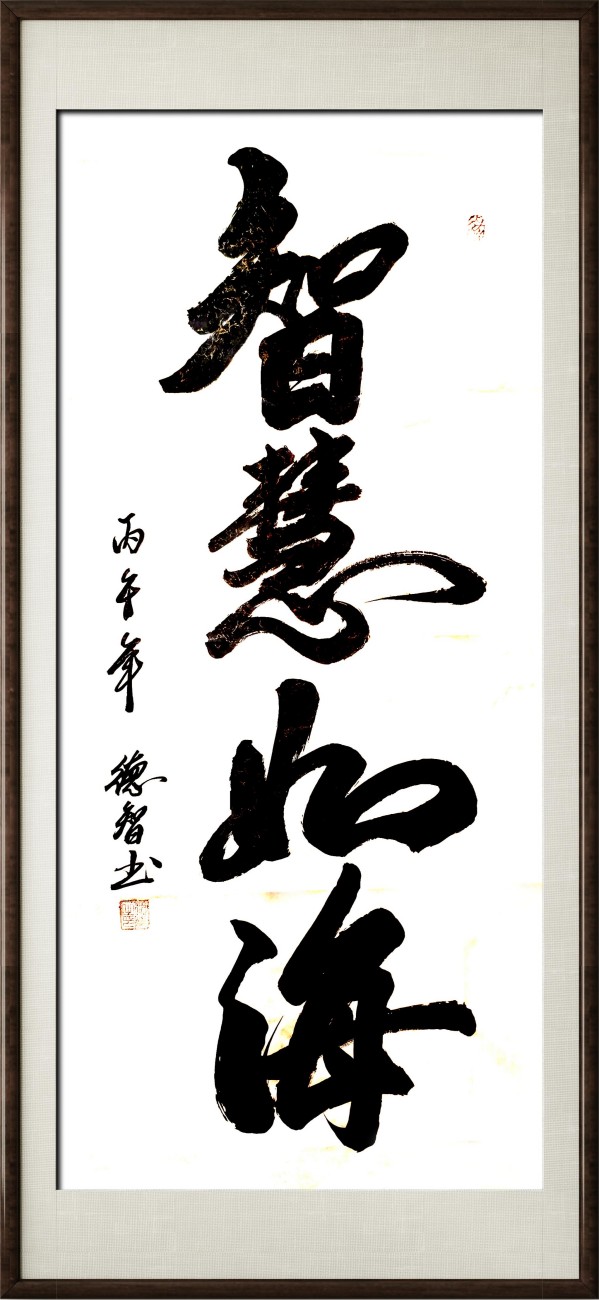 智慧如海
丙午年 德智书